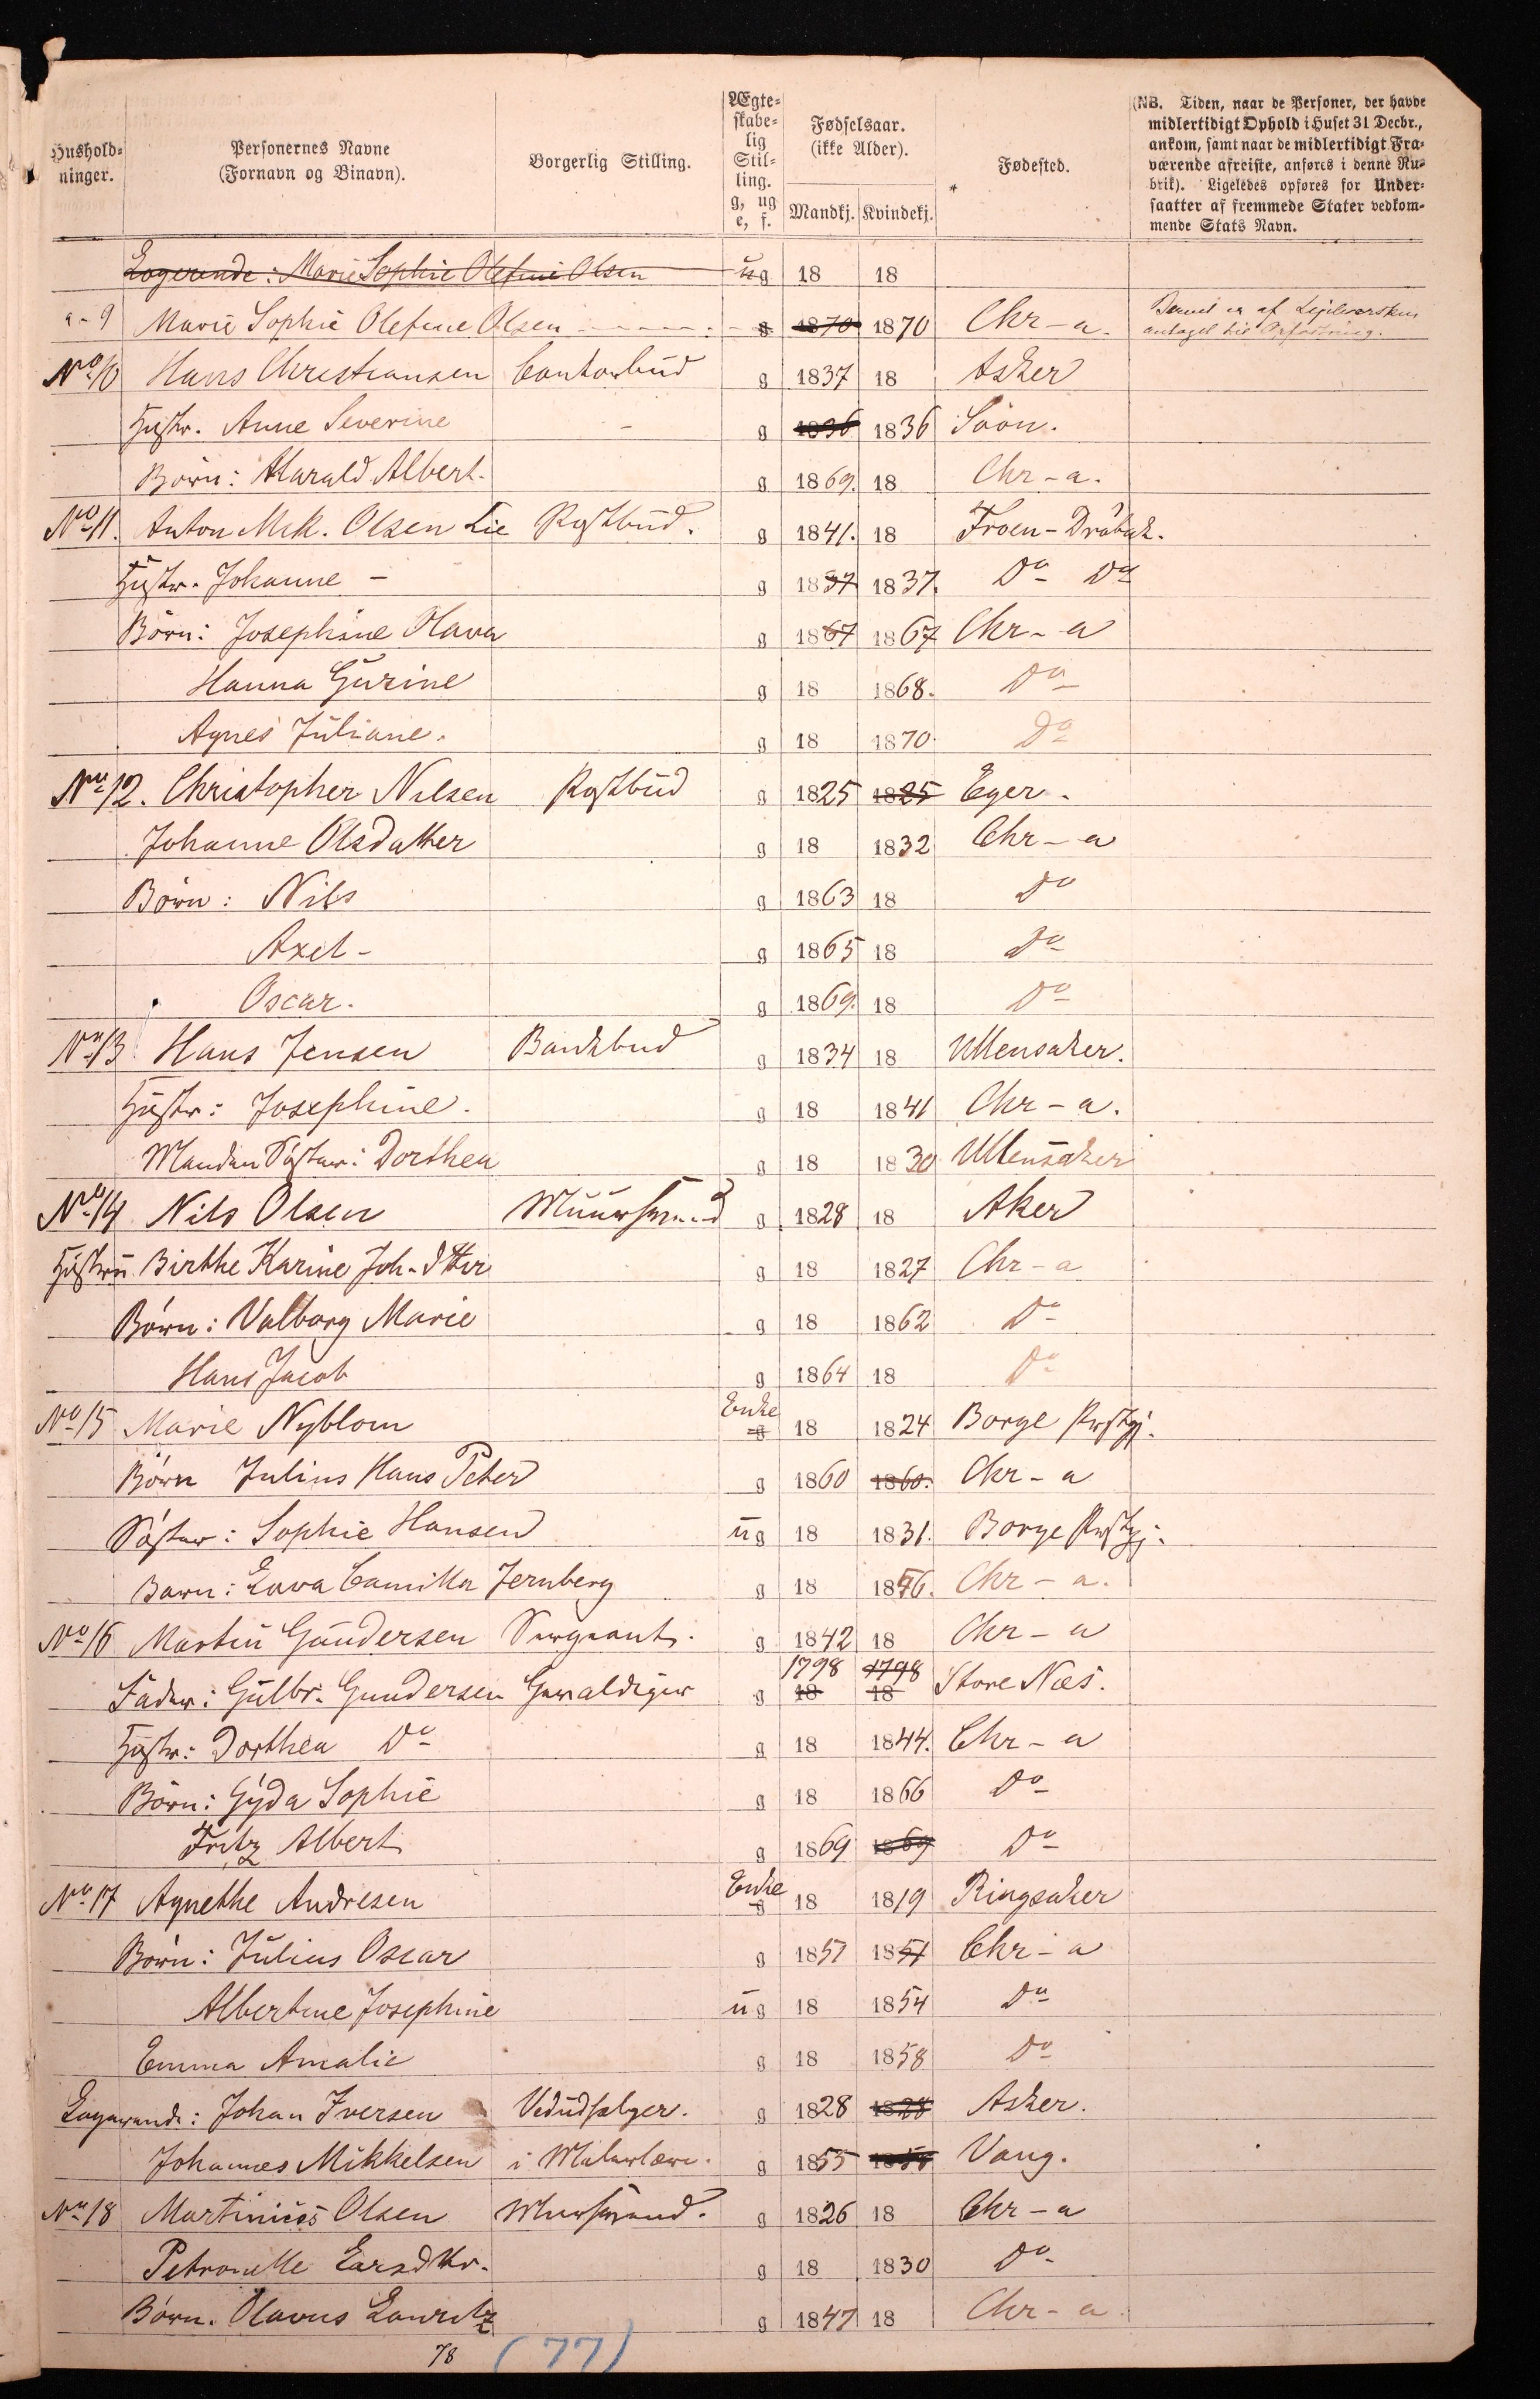 Hushold-
ninger.
Personernes Navne
(Fornavn og Binavn).
Borgerlig Stilling.
Ægte-
skabe-
lig
Stil-
ling.
g, ug
e, f.
Fødselsaar.
(ikke Alder).
Mandkj. Kvindekj.
* Fødested.
(NB. Tiden, naar de Personer, der havde
midlertidigt Ophold i Huset 31 Decbr.,
ankom, samt naar de midlertidigt Fra-
værende afreiste, anføres i denne Ru-
brik). Ligeledes opføres for Under-
saatter af fremmede Stater vedkom-
mende Stats Navn.
Logerende: Marie Sophie Olefine Olsen ug 18 18
a-9 Marie Sophie Olefine Olsen g 1870 1870 Chr-a. Barnet er af
antaget til Opfostring.
No 10 Hans Christiansen Contorbud g 1837 18 Asker
Hustr. Anne Severine - g 1836 1836 Soon.
Börn: Harald Albert. g 1869. 18 Chr-a.
No 11. Anton Mrk. Olsen Lie Postbud. g 1841. 18 Froen-Dröbak.
Hustr. Johanne - g 1837 1837. Do Do
Börn: Josephine Olava g 1867 1867 Chr-a
Hanna Gurine g 18 1868. Do
Agnes Juliane. g 18 1870. Do
No 12. Christopher Nilsen Postbud g 1825 1825 Eger.
Johanne Olsdatter g 18 1832 Chr-a
Börn: Nils g 1863 18 Do
Axel - g 1865 18 Do
Oscar. g 1869. 18 Do
No 13 Hans Jensen Bankbud g 1834 18 Ullensaker.
Hustr: Josephine. g 18 1841 Chr-a.
Manden Söster: Dorthea g 18 1830 Ullensaker
No 14 Nils Olsen Muursvend g 1828 18 Aker
Hustru Birthe Karine Joh-dtter g 18 1827 Chr-a
Börn: Valborg Marie g 18 1862 Do
Hans Jacob g 1864 18 Do
No 15 Marie Nyblom Enke g 18 1824 Borge Prstgj.
Börn Julius Hans Peter g 1860 1860. Chr-a
Söster: Sophie Hansen ug 18 1831. Borge Prstgj.
Barn: Lova Camilla Jernberg g 18 1856. Chr-a.
No 16 Martin Gundersen Sergeant. g 1842 18 Chr-a
Fader: Gulbr. Gundersen Gevaldiger g 1798 18 1798 18 Store Næs.
Hustr: Dorthea Do g 18 1844. Chr-a
Börn: Gyda Sophie g 18 1866 Do
Fritz Albert g 1869 1869 Do
No 17 Agnethe Andresen Enke g 18 1819 Ringsaker
Börn: Julius Oscar g 1851 1851 Chr-a
Albertine Josephine ug 18 1854 Do
Emma Amalie g 18 1858 Do
Logerende: Johan Iversen Vedudsælger. g 1828 1828 Asker.
Johannes Mikkelsen i Malerlære. g 1855 1855 Vang.
No 18 Martinius Olsen Muursvend. g 1826 18 Chr-a
Petronelle Larsdtr. g 18 1830 Do
Börn. Olavus Lauritz g 1847 18 Chr-a
78 (77)